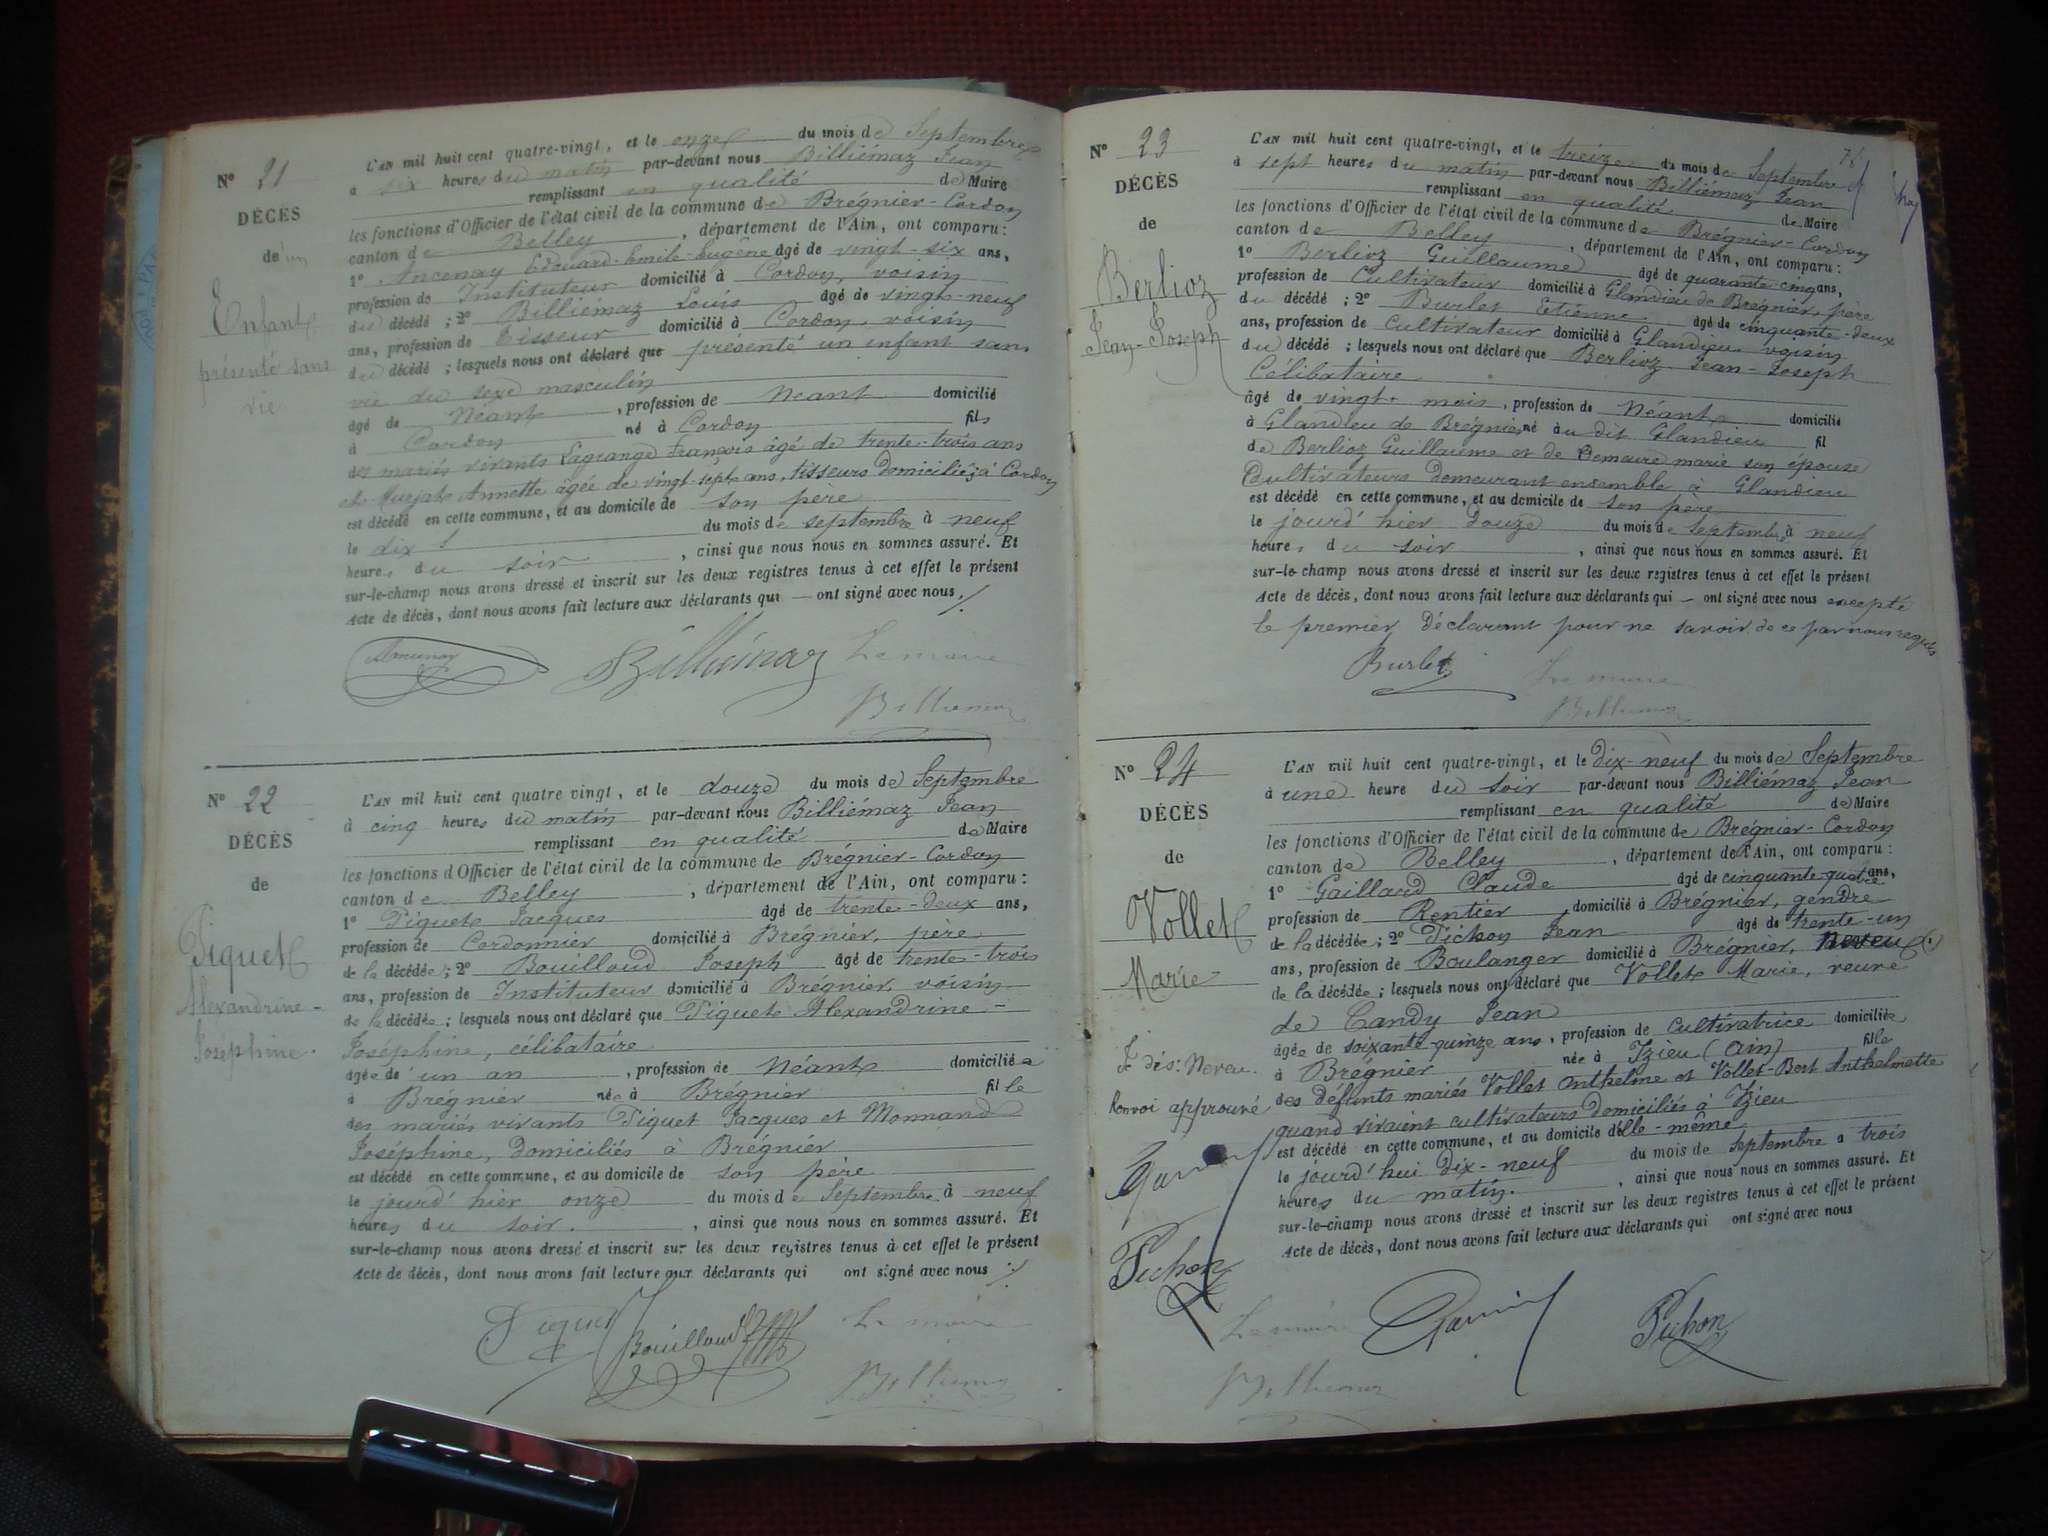 N° 21
DÉCÈS
d'un
Enfant
présenté sans
vie
L'AN mil huit cent quatre-vingt, et le onze du mois de Septembre
à six heures du matin par-devant nous Billiémaz Jean
remplissant en qualité de Maire
les fonctions d'Officier de l'état civil de la commune de Brégnier-Cordon
canton de Belley, département de l'Ain, ont comparu:
1° Ancenay Edouard-Emile-Eugène âgé de vingt-six ans,
profession de Instituteur domicilié à Cordon, voisin
du décédé; 2° Billiémaz Louis âgé de vingt-neuf
ans, profession de Tisseur domicilié à Cordon, voisin
du décédé; lesquels nous ont déclaré que présenté un enfant sans
vie du sexe masculin
âgé de Néant, profession de Néant domicilié
à Cordon né à Cordon fils
des mariés vivants Lagrange François âgé de trente-trois ans
et Annette âgée de vingt-sept ans, tisseurs domiciliés à Cordon
est décédé en cette commune, et au domicile de son père
le dix du mois de septembre à neuf
heures du soir, ainsi que nous nous en sommes assuré. Et
sur-le-champ nous avons dressé et inscrit sur les deux registres tenus à cet effet le présent
Acte de décès, dont nous avons fait lecture aux déclarants qui — ont signé avec nous ./.
Ancenay Billiémaz Le maire
Billiemaz
N° 22
DÉCÈS
de
Piquet
Alexandrine-
Joséphine.
L'AN mil huit cent quatre vingt, et le douze du mois de Septembre
à cinq heures du matin par-devant nous Billiémaz Jean
remplissant en qualité de Maire
les fonctions d'Officier de l'état civil de la commune de Brégnier-Cordon
canton de Belley, département de l'Ain, ont comparu:
1° Piquet Jacques âgé de trente-deux ans,
profession de Cordonnier domicilié à Brégnier, père
de la décédée; 2° Bouilloud Joseph âgé de trente-trois
ans, profession de Instituteur domicilié à Brégnier, voisin
de la décédée; lesquels nous ont déclaré que Piquet Alexandrine-
Joséphine, célibataire
âgée de un an, profession de Néant domiciliée
à Brégnier née à Brégnier fille
des mariés vivants Piquet Jacques et Monnand
Joséphine, domiciliés à Brégnier
est décédé en cette commune, et au domicile de son père
le jourd'hier onze du mois de Septembre à neuf
heures du soir, ainsi que nous nous en sommes assuré. Et
sur-le-champ nous avons dressé et inscrit sur les deux registres tenus à cet effet le présent
Acte de décès, dont nous avons fait lecture aux déclarants qui ont signé avec nous ./.
Piquet Bouilloud Le maire
Billiemaz
N° 23
DÉCÈS
de
Berlioz
Jean-Joseph
L'AN mil huit cent quatre-vingt, et le treize du mois de Septembre
à sept heures du matin par-devant nous Billiémaz Jean
remplissant en qualité de Maire
les fonctions d'Officier de l'état civil de la commune de Brégnier-Cordon
canton de Belley, département de l'Ain, ont comparu:
1° Berlioz Guillaume âgé de quarante-cinq ans,
profession de Cultivateur domicilié à Glandieu de Brégnier, père
du décédé; 2° Burlet Etienne âgé de cinquante-deux
ans, profession de Cultivateur domicilié à Glandieu voisin
du décédé; lesquels nous ont déclaré que Berlioz Jean-Joseph
Célibataire
âgé de vingt mois, profession de Néant domicilié
à Glandieu de Brégnier né au dit Glandieu fil
de Berlioz Guillaume et de Demeure marie son épouse
Cultivateurs demeurant ensemble à Glandieu
est décédé en cette commune, et au domicile de son père
le jourd'hier douze du mois de septembre à neuf
heures du soir, ainsi que nous nous en sommes assuré. Et
sur-le-champ nous avons dressé et inscrit sur les deux registres tenus à cet effet le présent
Acte de décès, dont nous avons fait lecture aux déclarants qui — ont signé avec nous excepté
le premier déclarant pour ne savoir de ce par nous requis
Burlet Le maire
Billiemaz
N° 24
DÉCÈS
de
Vollet
Marie
Renvoi approuvé
Pichon
L'AN mil huit cent quatre-vingt, et le dix-neuf du mois de Septembre
à une heure du soir par-devant nous Billiémaz Jean
remplissant en qualité de Maire
les fonctions d'Officier de l'état civil de la commune de Brégnier-Cordon
canton de Belley, département de l'Ain, ont comparu:
1° Gaillard Claude âgé de cinquante-quatre ans,
profession de Rentier domicilié à Brégnier, gendre
de la décédée; 2° Pichon Jean âgé de trente-un
ans, profession de Boulanger domicilié à Brégnier, Neveu (.)
de la décédée; lesquels nous ont déclaré que Vollet Marie, veuve
de Candy Jean
âgée de soixante-quinze ans, profession de Cultivatrice domiciliée
à Brégnier née à Izieu (Ain) fille
des défunts mariés Vollet Anthelme et Vollet-Bert Anthelmette
quand vivaient cultivateurs domiciliés à Izieu
est décédé en cette commune, et au domicile d'elle-même
le jourd'hui dix-neuf du mois de septembre à trois
heures du matin, ainsi que nous nous en sommes assuré. Et
sur-le-champ nous avons dressé et inscrit sur les deux registres tenus à cet effet le présent
Acte de décès, dont nous avons fait lecture aux déclarants qui ont signé avec nous
Le maire Pichon
Billiemaz